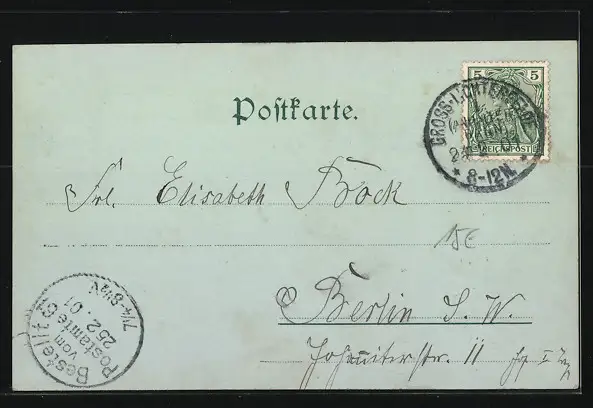 Postkarte.
5 5
REICHSPOST
GROSS-LICHTERFELDE
8-12N.
Frl. Elisabeth Bock
Berlin S. W.
Johanniterstr. 11
Bestellt
vom
Postamte
25 2. 01
7¼-8½V